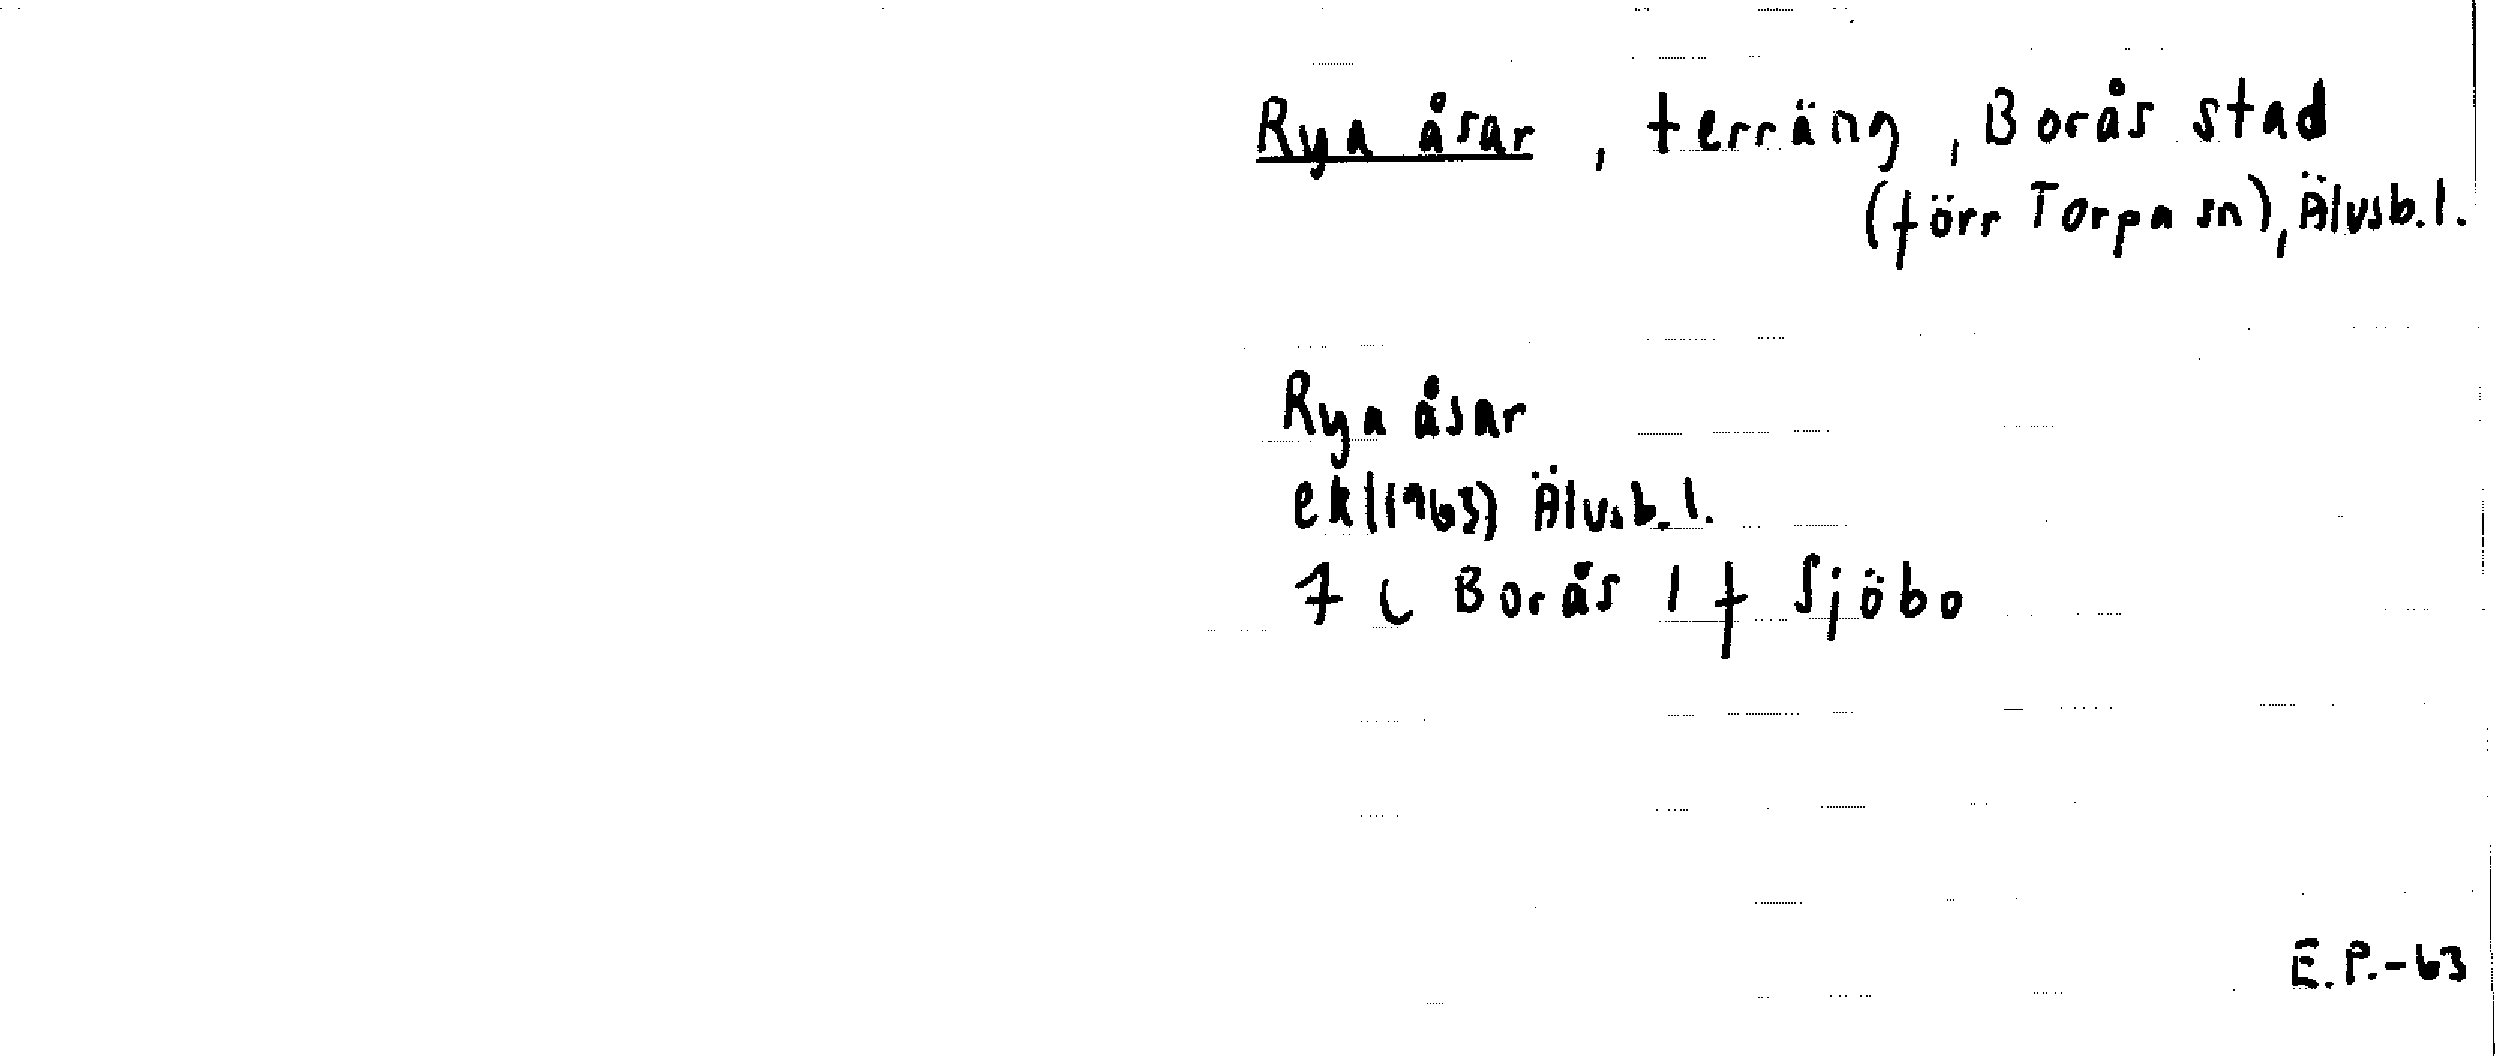 Rya åsar, terräng, Borås stad
(förr Torpa sn), Älvsb. l.
Rya åsar
ek (1963) Älvsb. l.
7 C Borås 1 f Sjöbo
E.P.-63